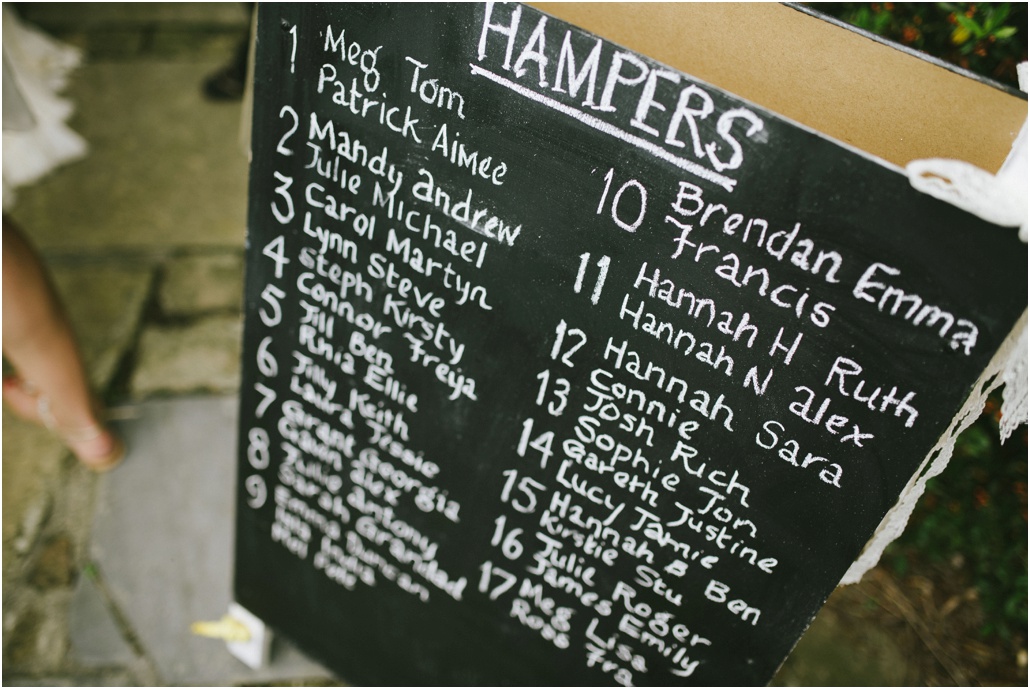 HAMPERS
1 Meg Tom
Patrick Aimee
2 Mandy andrew
Julie Michael
3 Carol Martyn
Lynn Steve
4 Steph Kirsty
Connor Freya
5 Jill Ben
Rhia Ellie
6 Jilly Keith
Laura Jessie
7 Grant Georgia
Gavin alex
8 Julie Antony
Sarah
9 Emma Duncan
10 Brendan Emma
Francis
11 Hannah H Ruth
Hannah N alex
12 Hannah Sara
Connie
13 Josh Rich
Sophie Jon
14 Gareth Justine
Lucy Jamie
15 Hannah B Ben
Kirstie Stu
16 Julie Roger
James Emily
17 Meg Lisa
Ross Fra